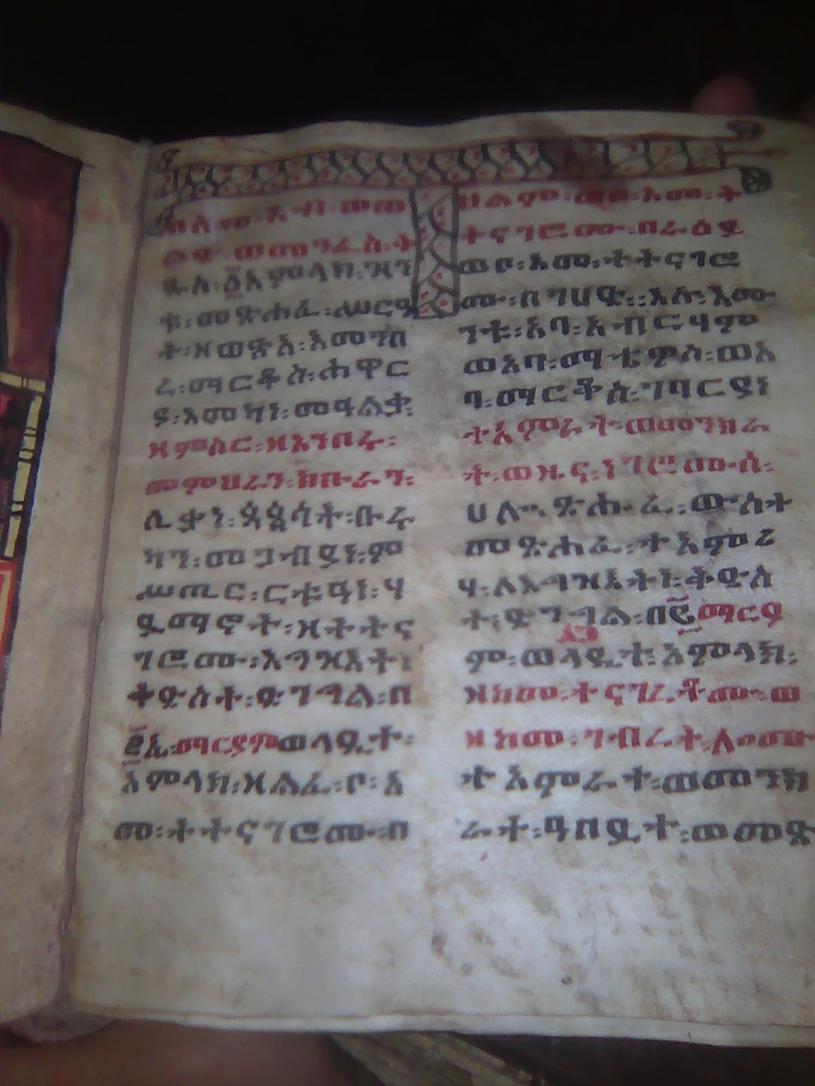 በስመ፡አብ፡ወወ
ልድ፡ወመንፈስ፡ቅ
ዱስ፡፩አምላክ፡ዝን
ቱ፡መጽሐፈ፡ሥርዓ
ት፡ዘወጽአ፡እመንበ
ረ፡ማርቆስ፡ሐዋር
ያ፡እመካነ፡መዓልቃ፡
ዘምስር፡ዘአንበሩ፡
ሊቃነ፡ጳጳሳት፡ቡሩ
ካን፡መጋብያነ፡ም
ሥጢር፡ርቱዓነ፡ሃ
ይማኖት፡ዘትትና
ገሮሙ፡እግዝእትነ
ቅድስት፡ድንግል፡በ
፪ኤ፡ማርያምወላዲተ፡
አምላክ፡ዘልፈ፡ቦ፡አ
መ፡ትትናገሮሙ፡በ
ሕልም፡ወቦ፡አመ፡ት
ትናገሮሙ፡በራዕይ
ወቦ፡አመ፡ትትናገሮ
ሙ፡በገሀድ፡፡እሉ፡እሙ
ንቱ፡አባ፡አብርሃም
ወአባ፡ማቴዎስ፡ወአ
ባ፡ማርቆስ፡ገባርያነ
ተአምራት፡ወመንክራ
ት፡ወዜና፡ነገሮሙሰ፡
ሀሎ፡ጽሑፈ፡ውስተ
መጽሐፈ፡ተአምሪ
ሃ፡ለእግዝእትነ፡ቅድስ
ት፡ድንግል፡በ፪ማርያ
ም፡ወላዲተ፡አምላክ፡
ዘከመ፡ተናገረቶሙ፡ወ
ዘከመ፡ገብረት፡ሎሙ
ተአምራተ፡ወመንክ
ራተ፡ዓበይተ፡ወመጽ